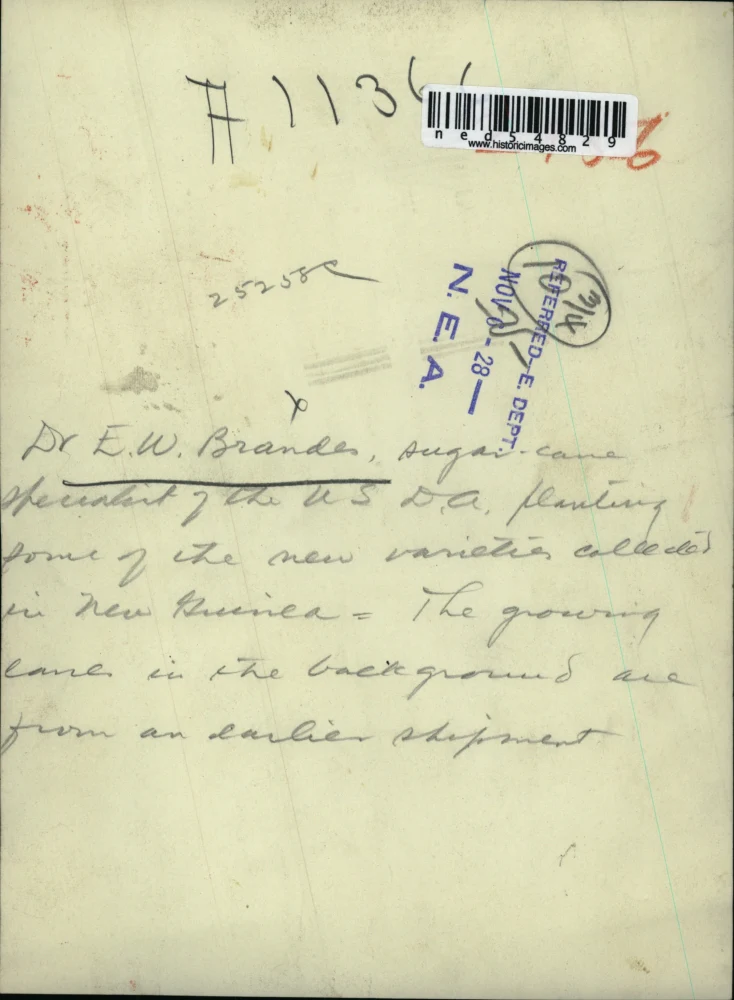 # 1136
ned54829
www.historicimages.com
25258c
REFERRED-E. DEPT.
NOV 8 - 28
N. E. A.
Dr E.W. Brandes, sugar-cane
specialist of the U S D.A. planting
some of the new varieties collected
in New Guinea = The growing
canes in the background are
from an earlier shipment